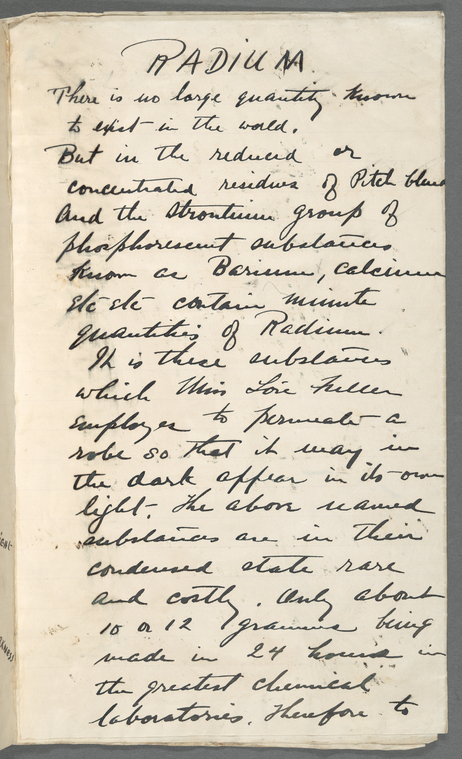 RADIUM
There is no large quantity known
to exist in the world.
But in the reduced or
concentrated residues of Pitch blend
and the strontium group of
phosphorescent substances
known as Barium, calcium
etc etc contain minute
quantities of Radium.
It is these substances
which Miss Loïe Fuller
employes to permeate a
robe so that it may in
the dark appear in its own
light. The above named
substances are in their
condensed state rare
and costly. Only about
10 or 12 gramms being
made in 24 hours in
the greatest chemical
laboratories. Therefore to